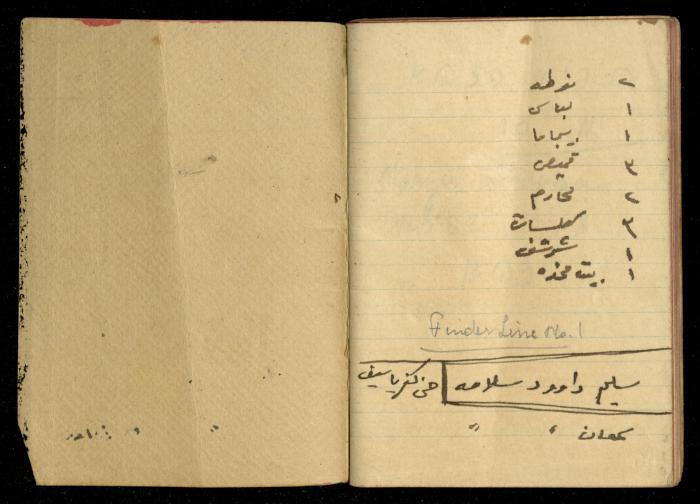 ٢ فوطه
١ لباس
١ بيجاما
٣ قميص
٢ محارم
٣ كلسات
١ شرشف
١ بيت مخده
Finder Line No. 1
سليم داوود سلامه حنى كفرياسيف
" "